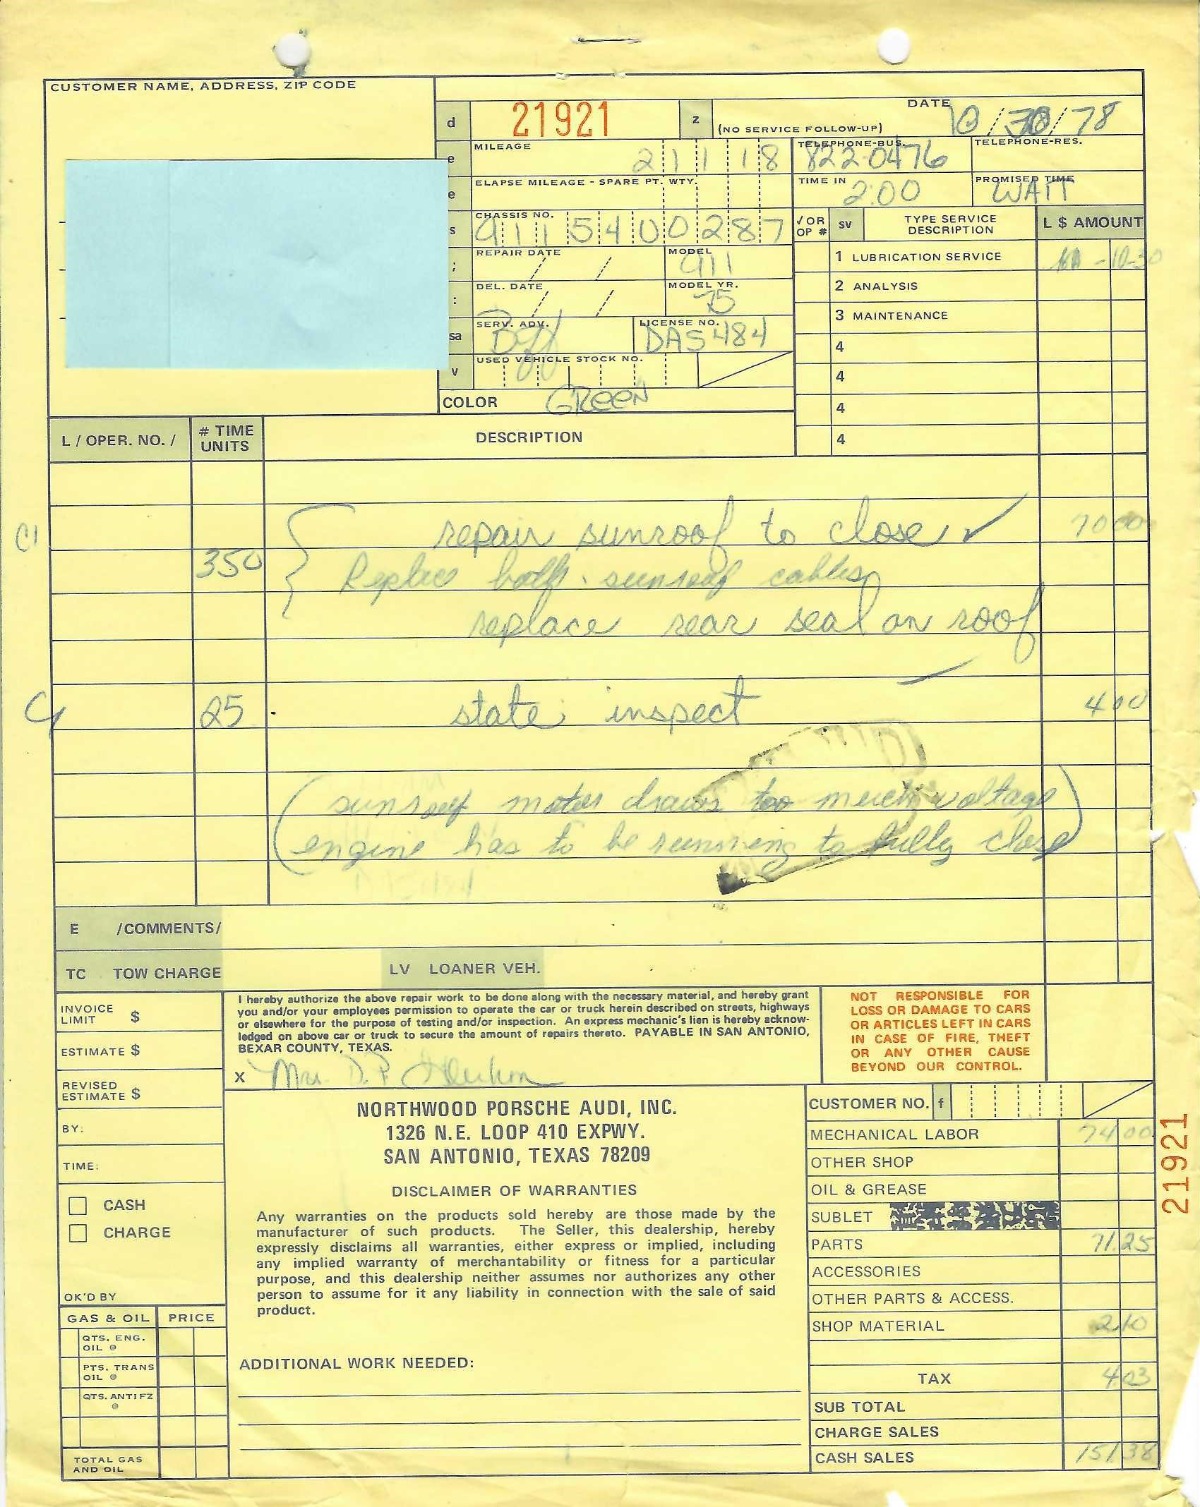 CUSTOMER NAME, ADDRESS, ZIP CODE
d 21921 z (NO SERVICE FOLLOW-UP) DATE 10/30/78
e MILEAGE 21118 TELEPHONE-BUS. 822-0476 TELEPHONE-RES.
e ELAPSE MILEAGE - SPARE PT. WTY. TIME IN 2:00 PROMISED TIME WAIT
s CHASSIS NO. 9115400287 √OR OP # SV TYPE SERVICE DESCRIPTION L $ AMOUNT
; REPAIR DATE / / MODEL 911
1 LUBRICATION SERVICE
: DEL. DATE / / MODEL YR. 75
2 ANALYSIS
3 MAINTENANCE
sa SERV. ADV. LICENSE NO. DAS484
4
v USED VEHICLE STOCK NO.
4
COLOR GREEN
4
4
L / OPER. NO. / # TIME UNITS DESCRIPTION
repair sunroof to close ✓ 70 00
350 Replace both sunroof cables
replace rear seal on roof
25 state inspect 4 00
(sunroof motor draws too much voltage
engine has to be running to fully close)
E /COMMENTS/
TC TOW CHARGE LV LOANER VEH.
INVOICE LIMIT $
ESTIMATE $
REVISED ESTIMATE $
BY:
TIME:
CASH
CHARGE
OK'D BY
GAS & OIL PRICE
QTS. ENG. OIL @
PTS. TRANS OIL @
QTS. ANTI FZ @
TOTAL GAS AND OIL
I hereby authorize the above repair work to be done along with the necessary material, and hereby grant
you and/or your employees permission to operate the car or truck herein described on streets, highways
or elsewhere for the purpose of testing and/or inspection. An express mechanic's lien is hereby acknow-
ledged on above car or truck to secure the amount of repairs thereto. PAYABLE IN SAN ANTONIO,
BEXAR COUNTY, TEXAS.
X Mrs. D. P.
NOT RESPONSIBLE FOR
LOSS OR DAMAGE TO CARS
OR ARTICLES LEFT IN CARS
IN CASE OF FIRE, THEFT
OR ANY OTHER CAUSE
BEYOND OUR CONTROL.
NORTHWOOD PORSCHE AUDI, INC.
1326 N.E. LOOP 410 EXPWY.
SAN ANTONIO, TEXAS 78209
DISCLAIMER OF WARRANTIES
Any warranties on the products sold hereby are those made by the
manufacturer of such products. The Seller, this dealership, hereby
expressly disclaims all warranties, either express or implied, including
any implied warranty of merchantability or fitness for a particular
purpose, and this dealership neither assumes nor authorizes any other
person to assume for it any liability in connection with the sale of said
product.
ADDITIONAL WORK NEEDED:
CUSTOMER NO. f
MECHANICAL LABOR 74 00
OTHER SHOP
OIL & GREASE
SUBLET
PARTS 71 25
ACCESSORIES
OTHER PARTS & ACCESS.
SHOP MATERIAL 2 10
TAX 4 03
SUB TOTAL
CHARGE SALES
CASH SALES 151 38
21921